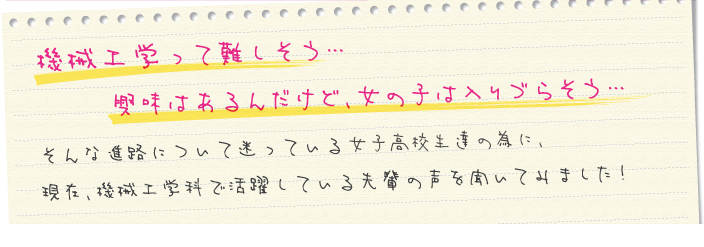 機械工学って難しそう…
興味はあるんだけど、女の子は入りづらそう…
そんな進路について迷っている女子高校生達の為に、
現在、機械工学科で活躍している先輩の声を聞いてみました！